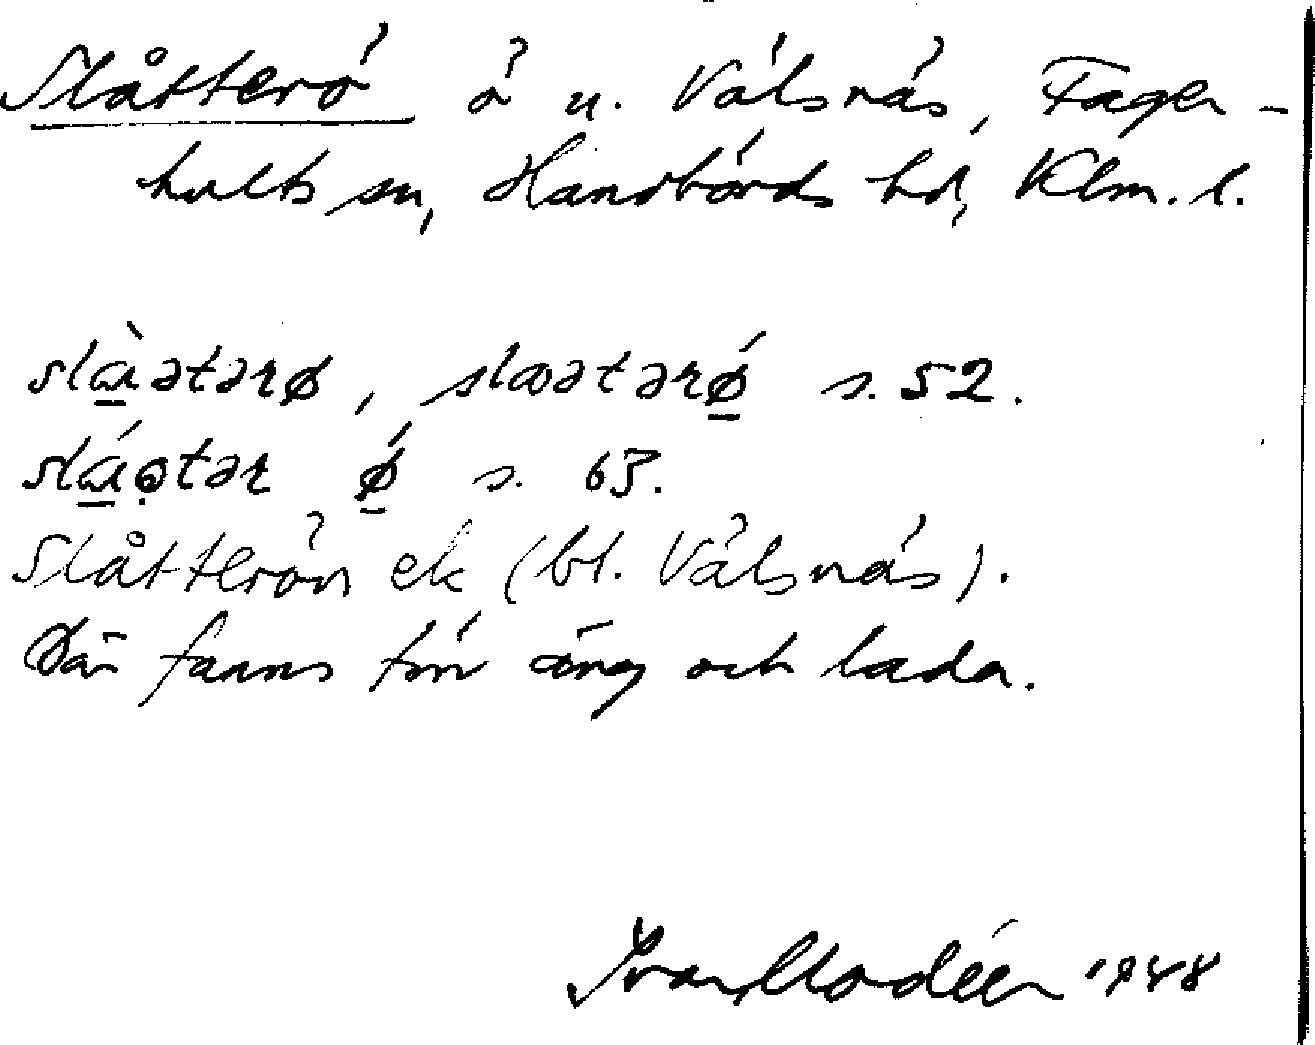 Slåtterö ö u. Välsnäs, Fager-
hults sn, Handbörds hd, Klm. l.
slɑ̀ətərø, slɑətərǿ s. 52.
slɑ́ətər ǿ s. 63.
Slåtterön ek (bl. Välsnäs).
Där fanns förr äng och lada.
Ivar Modéer 1948